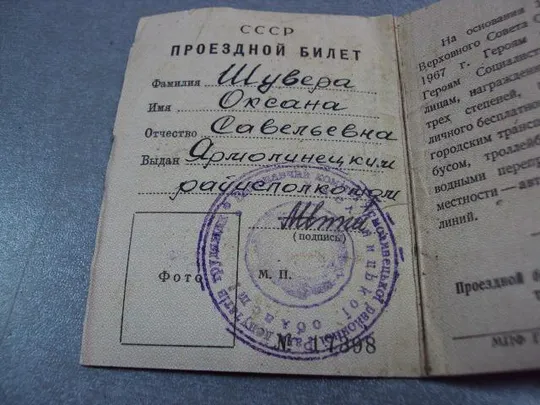 СССР
ПРОЕЗДНОЙ БИЛЕТ
Фамилия Шувера
Имя Оксана
Отчество Савельевна
Выдан Ярмолинецким
райисполкомом
(подпись)
Фото
М. П.
№ 17398
На основании
Верховного Совета
1967 г. Героям
Героям Социалис
лицам, награжденн
трех степеней,
личного бесплатно
городским транс
бусом, троллейб
водными переп
местности — авто
линий.
Проездной б
МПФ